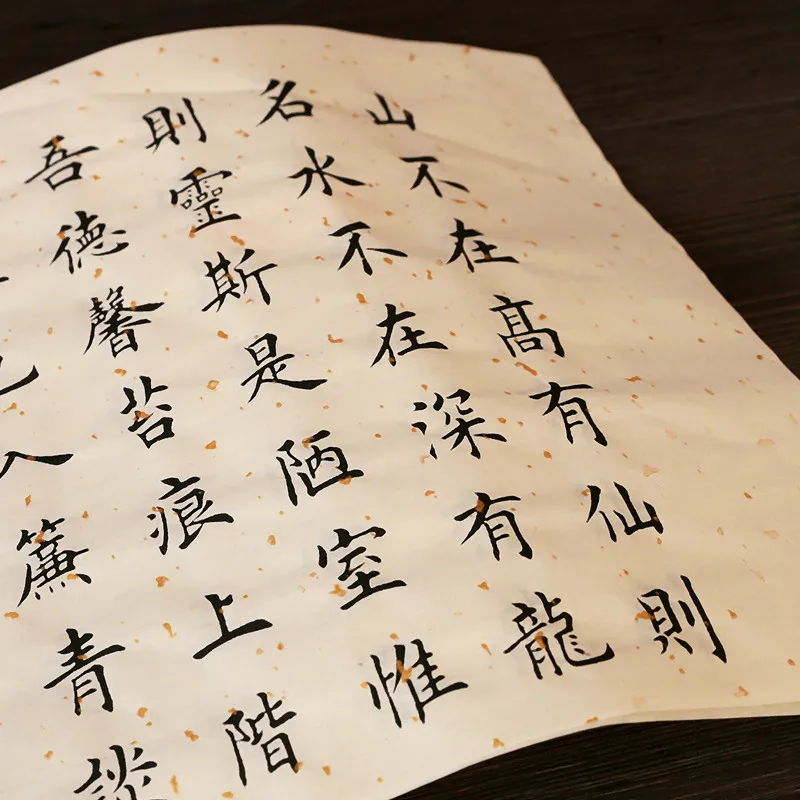 山不在高有仙則
名水不在深有龍
則靈斯是陋室惟
吾德馨苔痕上階
入簾青談